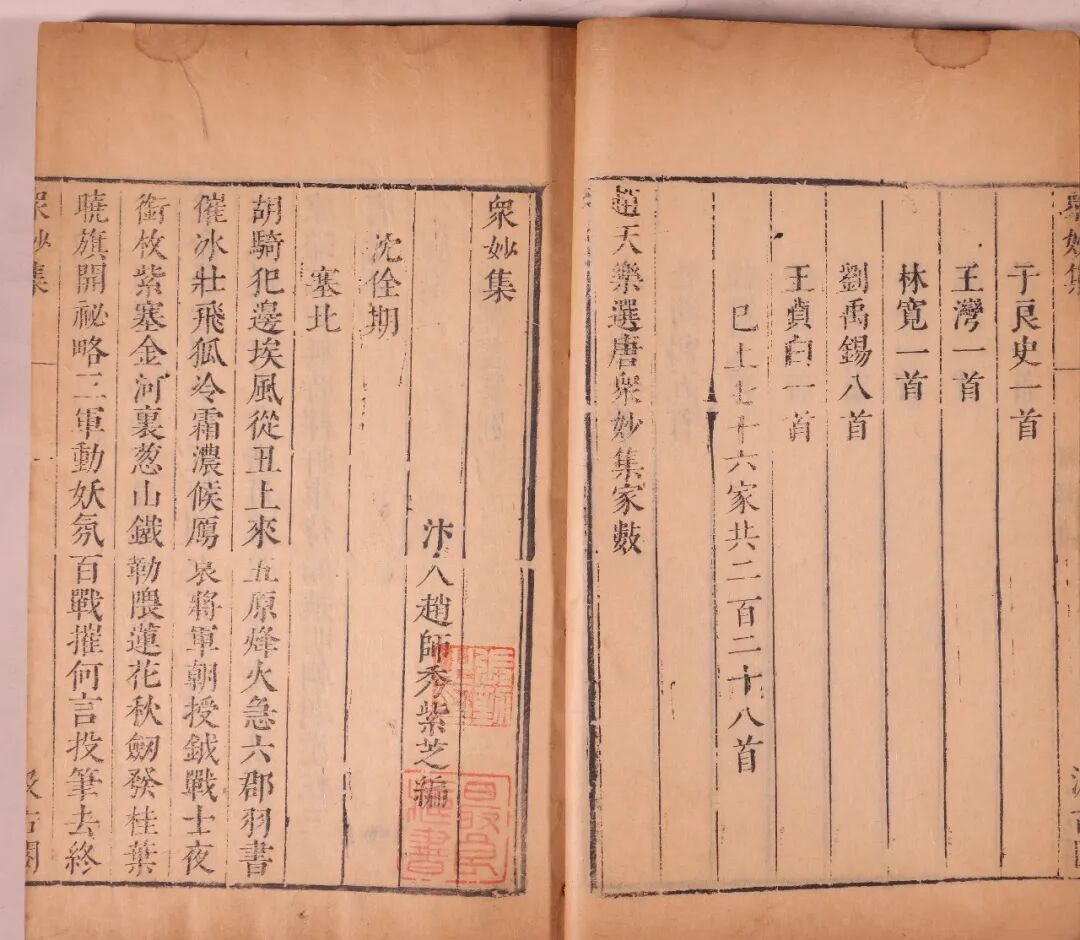 眾妙集
于良史一首
王灣一首
林寬一首
劉禹錫八首
王貞白一首
已上七十六家共二百二十八首
趙天樂選唐眾妙集家數
眾妙集
汴人趙師秀紫芝編
沈佺期
塞北
胡騎犯邊埃風從丑上來五原烽火急六郡羽書
催冰壯飛狐冷霜濃候鴈哀將軍朝授鉞戰士夜
銜枚紫塞金河裏葱山鐵勒隈蓮花秋劒發桂葉
曉旗開祕略三軍動妖氛百戰摧何言投筆去終
眾妙集
汲古閣